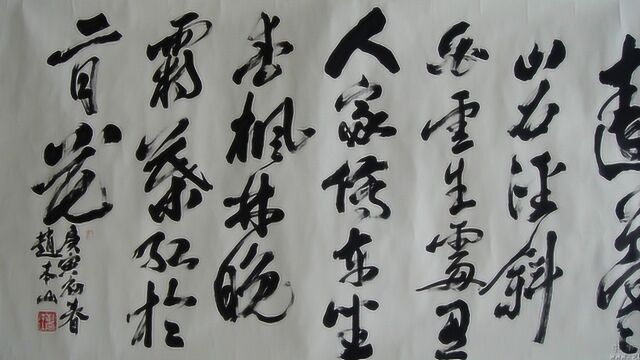 遠上寒
山石徑斜
白雲生處有
人家停車坐
愛楓林晚
霜葉紅於
二月花
庚寅初春
趙本山